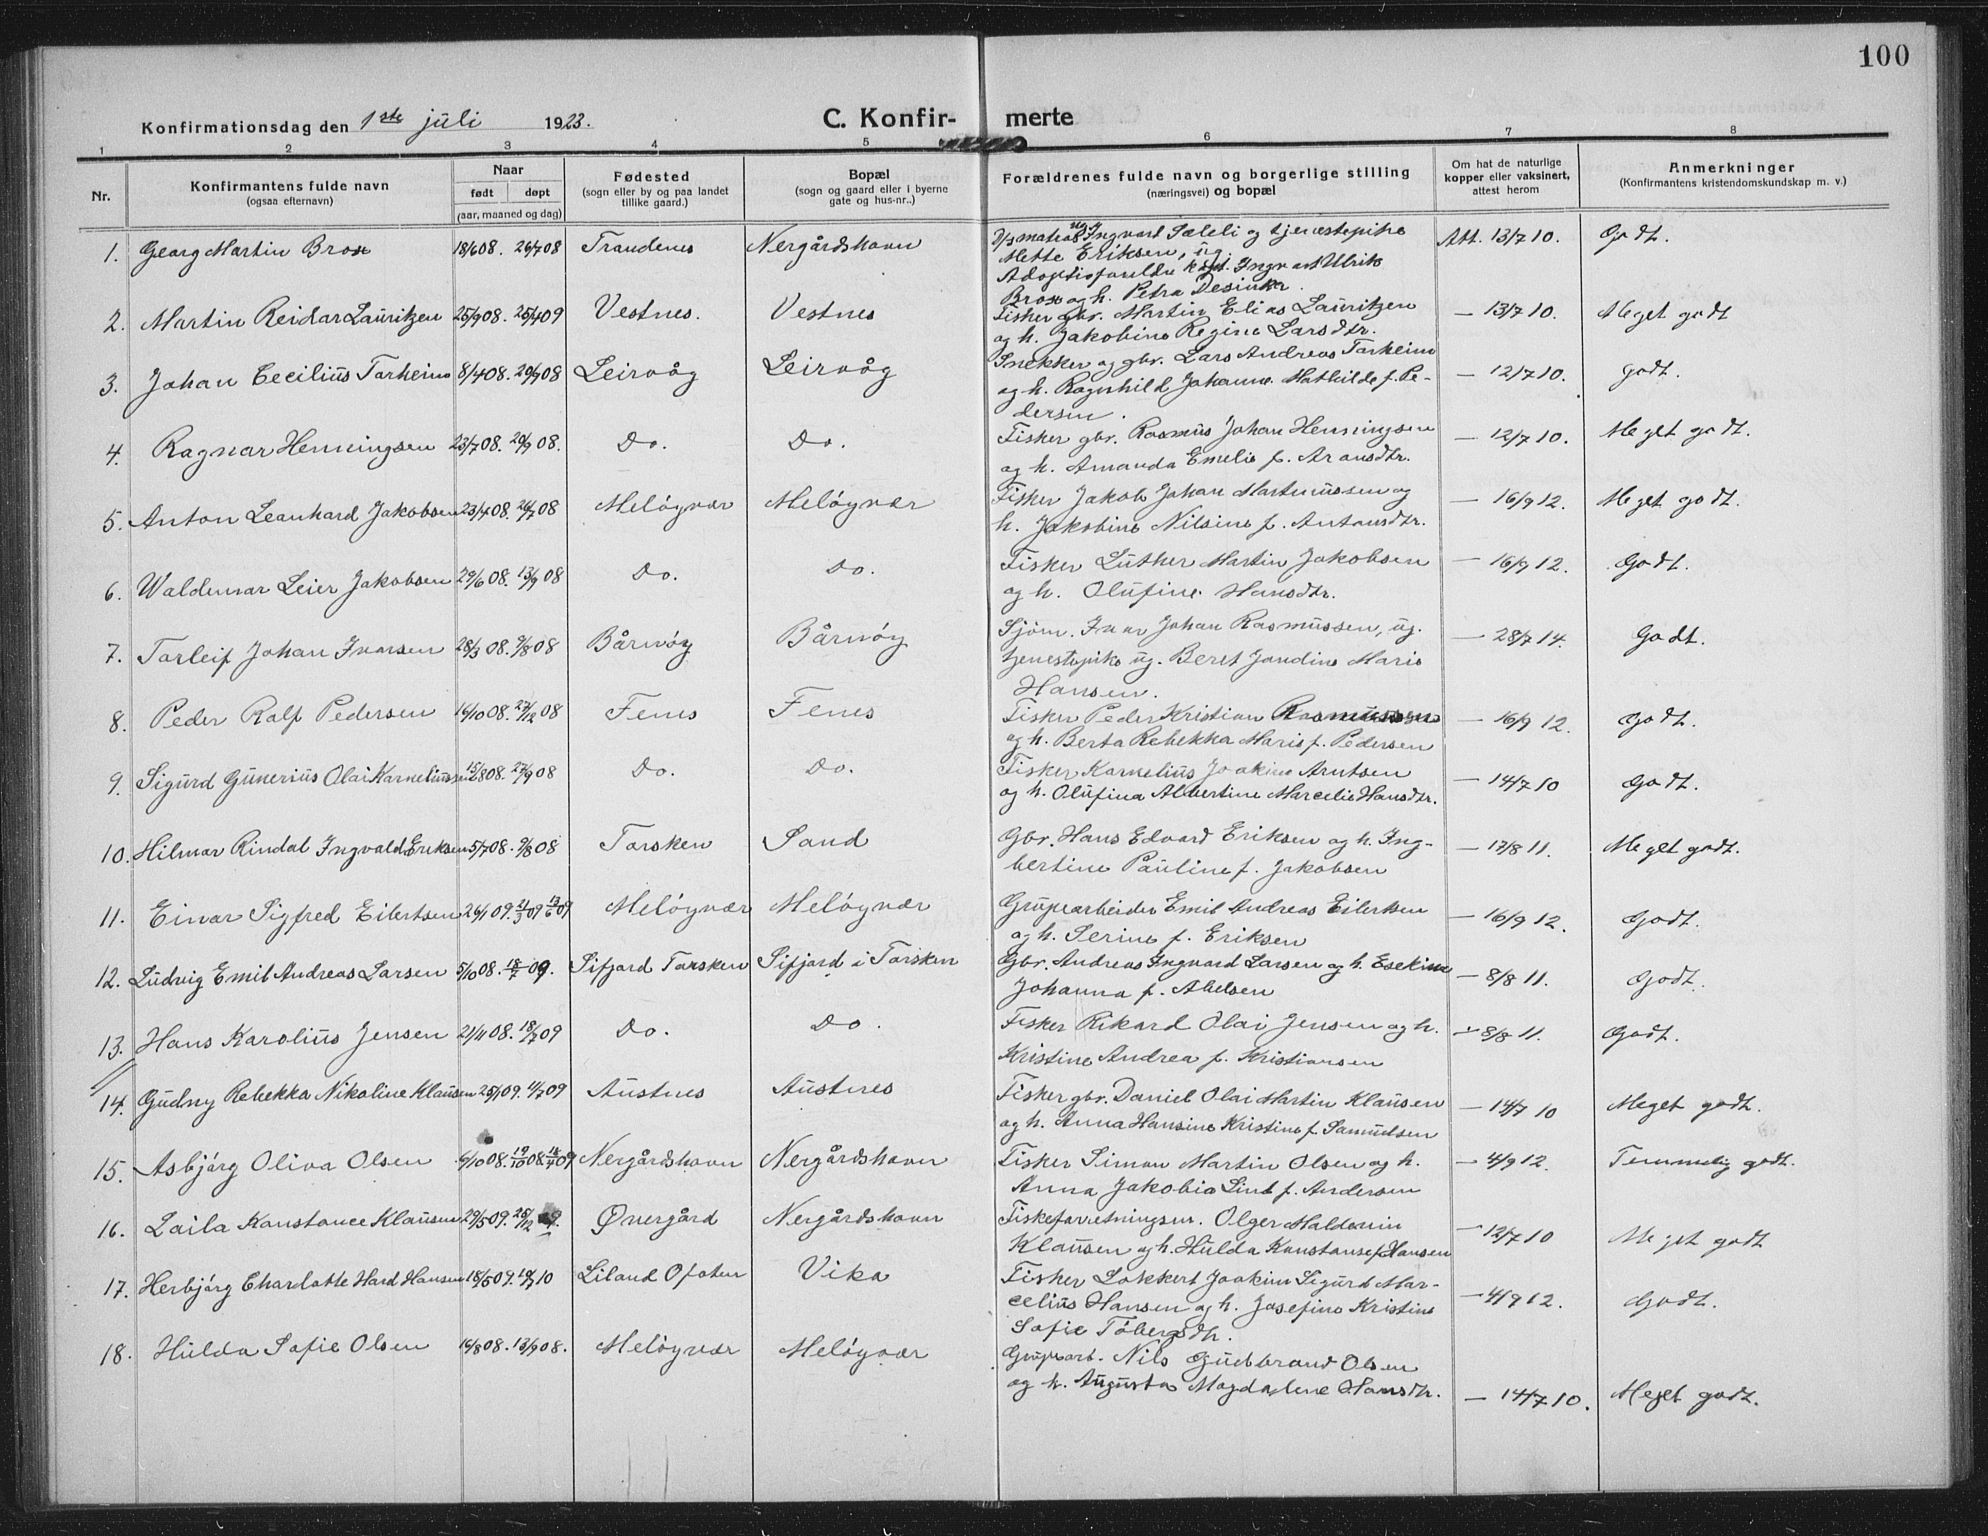 100
Konfirmationsdag den 1ste juli 1923.
C. Konfir- merte
1 2 3 4 5 6 7 8
Nr.
Konfirmantens fulde navn
(ogsaa efternavn)
Naar
født døpt
(aar, maaned og dag)
Fødested
(sogn eller by og paa landet
tillike gaard.)
Bopæl
(sogn og gaard eller i byerne
gate og hus-nr..)
Forældrenes fulde navn og borgerlige stilling
(næringsvei) og bopæl
Om hat de naturlige
kopper eller vaksinert,
attest herom
Anmerkninger
(Konfirmantens kristendomskundskap m. v.)
1. Georg Martin Brox 18/6 08. 26/7 08 Trandenes Nergårdshavn
D/s matros Ingvart Sæleli og tjenestepike
Mette Eriksen, ug.
Ingvart Ulrik
Brox og h. Petra
Att. 13/7 10. Godt.
2. Martin Reidar Lauritzen 25/9 08. 25/4 09 Vestnes. Vestnes
Fisker gbr. Martin Elias Lauritzen
og h. Jakobine Regine Larsdtr.
— 13/7 10. Meget godt
3. Johan Cecilius Torheim 8/4 08. 08 Leirvåg Leirvåg
Snekker og gbr. Lars Andreas Torheim
og h. Ragnhild Johanne Mathilde f. Pe-
dersen.
— 12/7 10. godt.
4. Ragnar Henningsen 23/7 08. 20/9 08. Do. Do.
Fisker gbr. Rasmus Johan Henningsen
og h. Amanda Emelie f. Aronsdtr.
— 12/7 10. Meget godt.
5. Anton Leonhard Jakobsen 23/4 08. 26/7 08 Meløyvær Meløyvær
Fisker Jakob Johan Martinussen og
h. Jakobine Nilsine f. Antonsdtr.
— 16/9 12. Meget godt.
6. Waldemar Leier Jakobsen 29/6 08. 13/9 08 Do. Do.
Fisker Luther Martin Jakobsen
og h. Olufine Hansdtr.
— 16/9 12. Godt.
7. Torleif Johan Ivarsen 28/3 08. 9/8 08 Bårnvöy Bårnvöy
Sjöm. Ivar Johan Rasmussen, ug.
tjenestepike ug. Beret Jondine Marie
Hansen.
— 28/7 14. Godt.
8. Peder Ralf Pedersen 16/10 08. 27/12 08 Fenes Fenes
Fisker Peder Kristian Rasmussen
og h. Berta Rebekka Marie f. Pedersen
— 16/9 12. Godt.
9. Sigurd Gunerius Olai Karneliussen 15/2 808. 27/9 08 Do. Do.
Fisker Karnelius Joakim Arntsen
og h. Olufina Albertine Marcelie Hansdtr.
— 14/7 10 Godt.
10. Hilmar Rindal Ingvald Eriksen 5/7 08. 9/8 08 Torsken Sand
Gbr. Hans Edvard Eriksen og h. Ing-
bertine Pauline f. Jakobsen
— 17/8 11. Meget godt.
11. Einar Sigfred Eilertsen 26/1 09. 21/3 09 13/6 09 Meløyvær Meløyvær
Grupearbeider Emil Andreas Eilertsen
og h. Serine f. Eriksen
— 16/9 12. Godt.
12. Ludvig Emil Andreas Larsen 5/10 08. 18/7 09. Sifjord Torsken Sifjord i Torsken
Gbr. Andreas Ingvard Larsen og h. Esekine
Johanna f. Abelsen
— 8/8 11. Godt.
13. Hans Karolius Jensen 21/11 08. 18/7 09 Do. Do.
Fisker Rikard Olai Jensen og h.
Kristine Andrea f. Kristiansen
— 8/8 11. Godt.
14. Gudny Rebekka Nikoline Klausen 25/1 09. 11/7 09 Austnes Austnes
Fisker gbr. Daniel Olai Martin Klausen
og h. Anna Hansine Kristine f. Samuelsen
— 14/7 10 Meget godt.
15. Asbjørg Oliva Olsen 6/10 08. 19/10 08. 18/4 09 Nergårdshavn Nergårdshavn
Fisker Simon Martin Olsen og h.
Anna Jakobia Sind f. Andersen
— 4/9 12. Temmelig godt.
16. Laila Konstance Klausen 29/5 09. 26/12 09. Øvergård Nergårdshavn
Fiskeforretningsm. Olger Haldorin
Klausen og h. Hulda Konstanse f. Hansen
— 12/7 10 Meget godt
17. Herbjörg Charlotte Hard Hansen 18/5 09. 10 Liland Ofoten Vika
Fisker Lokkert Joakim Sigurd Mar-
celius Hansen og h. Josefine Kristine
Sofie Tobergsdtr.
— 4/9 12. Godt.
18. Hulda Sofie Olsen 14/8 08. 13/9 08. Meløyvær Meløyvær
Grupearb. Nils Gudbrand Olsen
og h. Augusta Magdalene Hansdtr.
— 14/7 10. Meget godt.